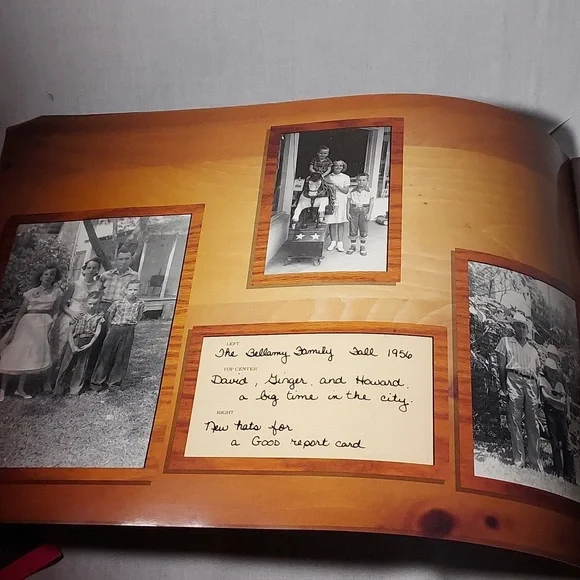 LEFT
The Bellamy Family Fall 1956
TOP CENTER
David, Ginger, and Howard,
a big time in the city.
RIGHT
New hats for
a Good report card